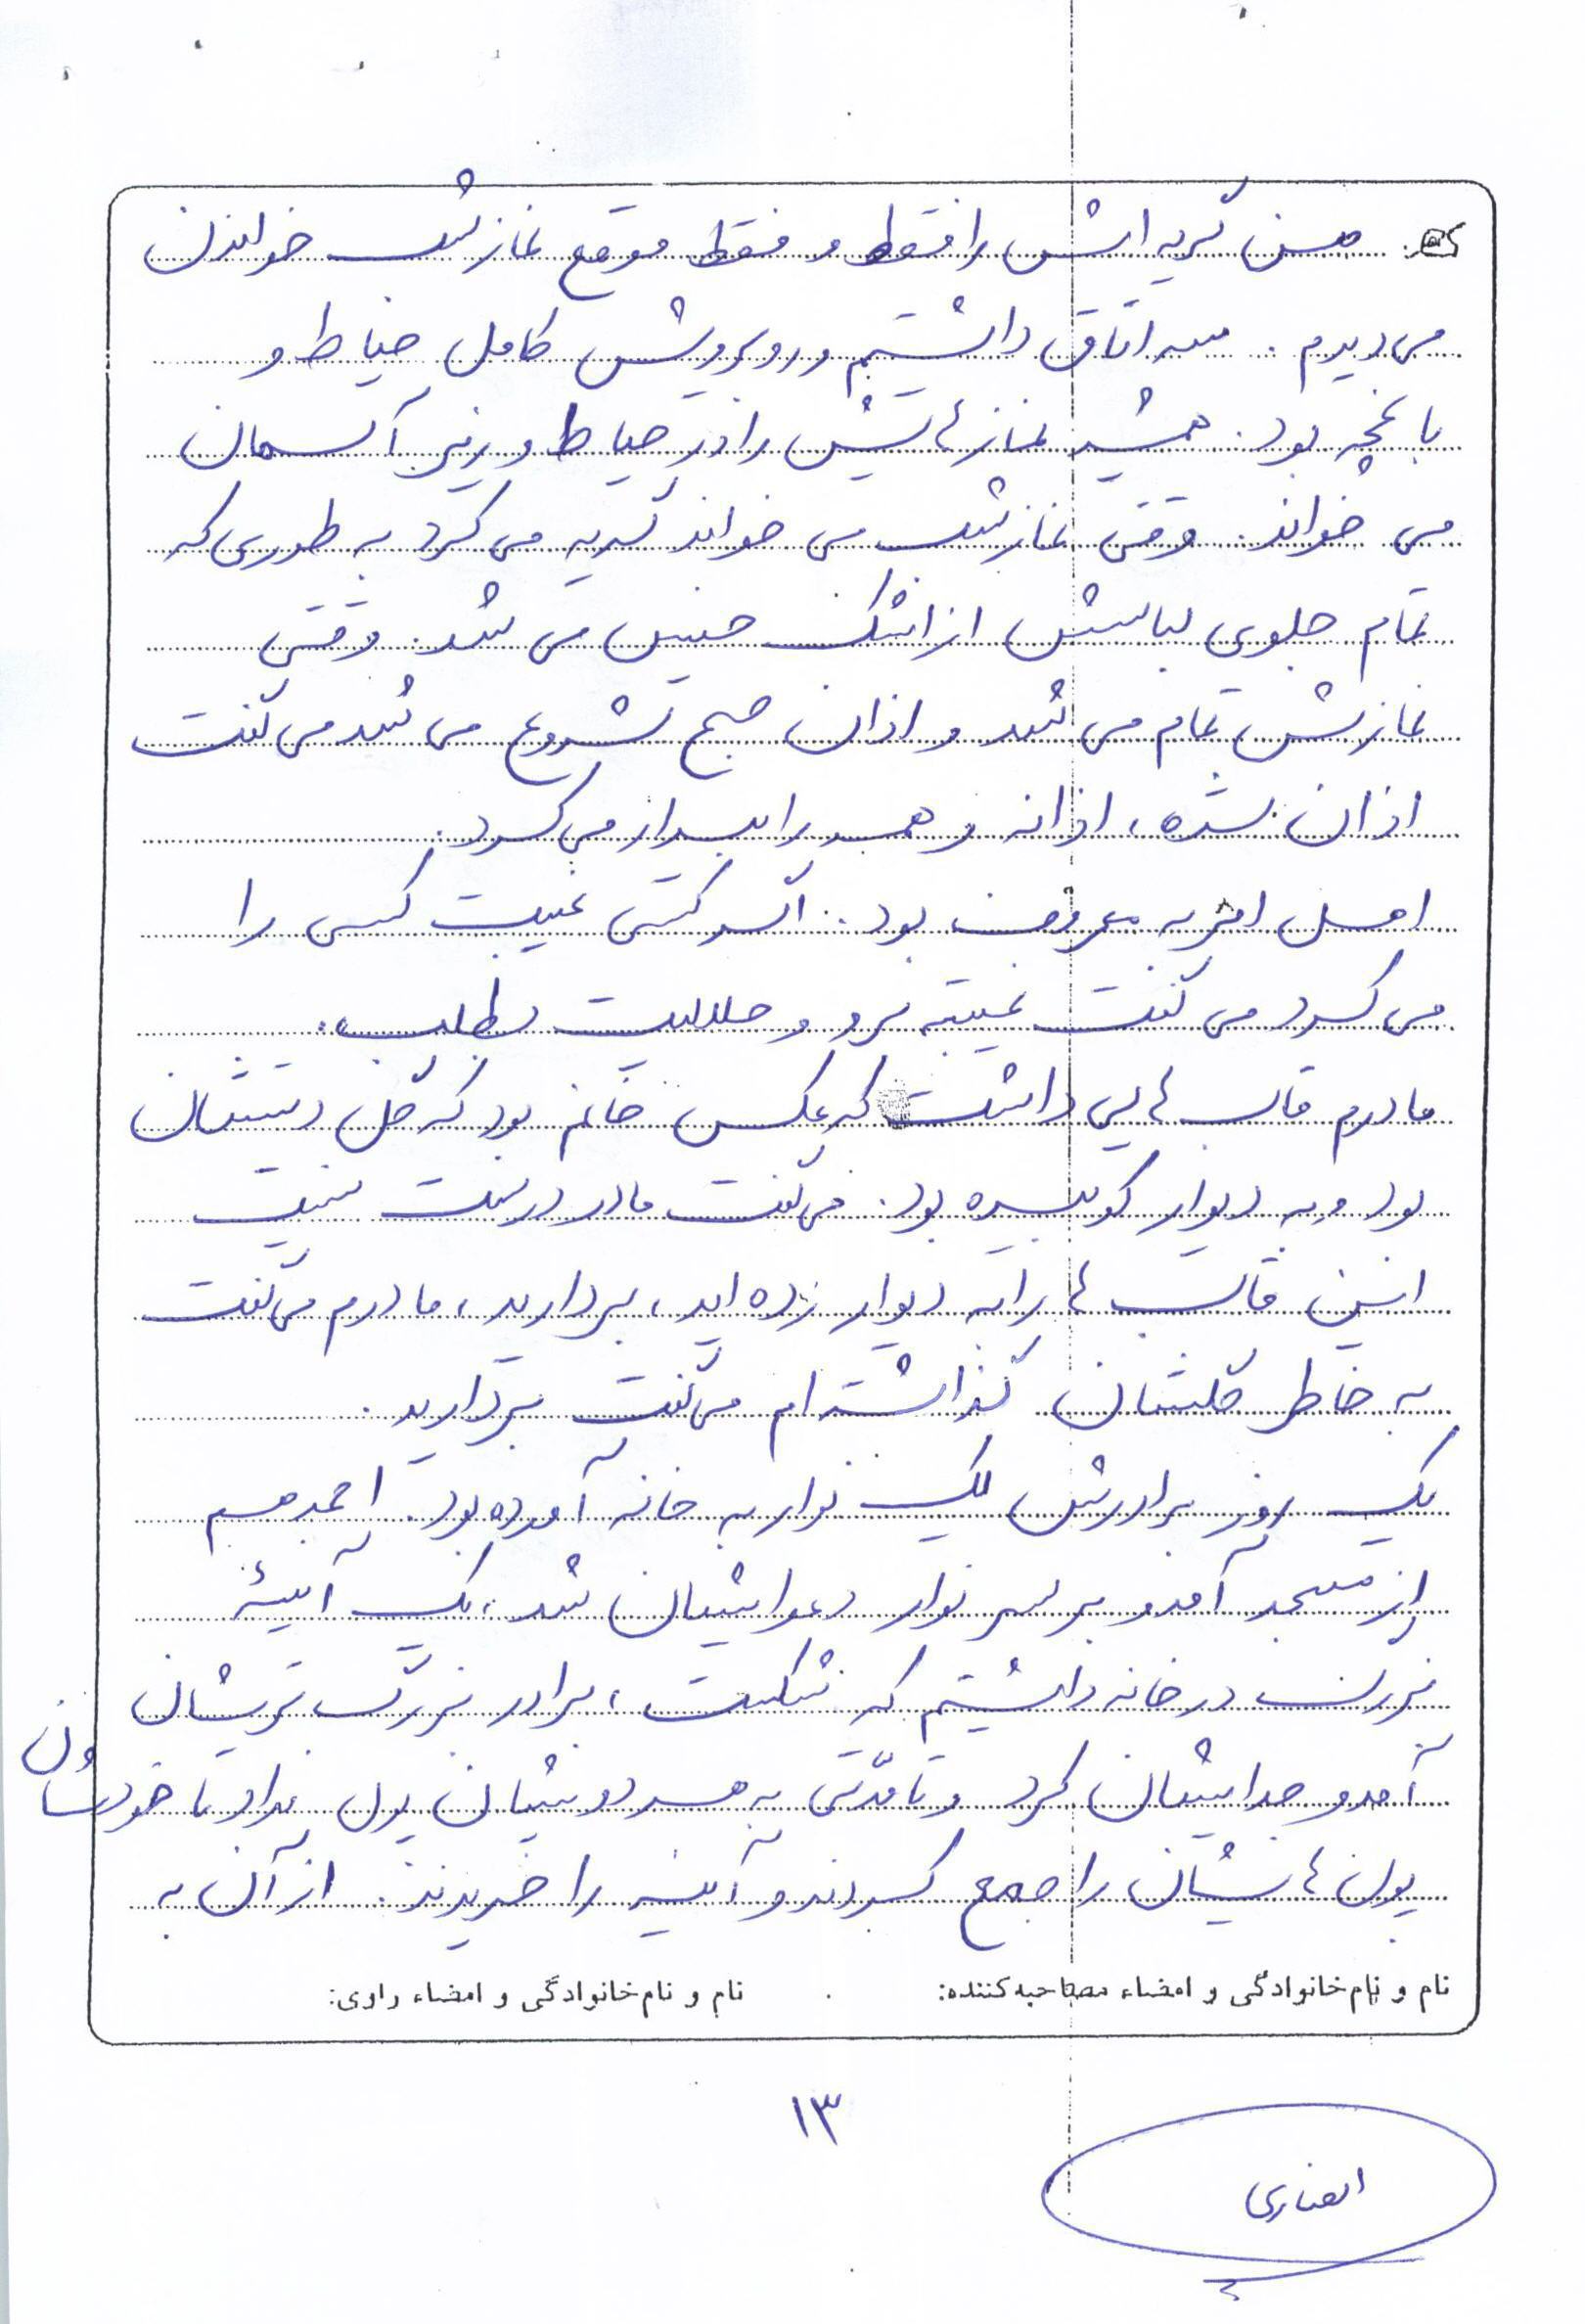 من گریه اش را فقط و فقط موقع نماز شب خواندن
می دیدم . سه اتاق داشتیم و روبرویش کامل حیاط و
باغچه بود. همیشه نمازهایش را در حیاط و زیر آسمان
می خواند. وقتی نماز شب می خواند گریه می کرد به طوری که
تمام جلوی لباسش از اشک خیس می شد. وقتی
نمازش تمام می شد و اذان صبح شروع می شد می گفت
اذان شده، اذانه و همه را بیدار می کرد.
اهل امر به معروف بود. اگر کسی غیبت کسی را
می کرد می گفت غیبته برو و حلالیت بطلب.
مادرم قاب هایی داشت که عکس خانم بود که گل دستشان
بود و به دیوار کوبیده بود. می گفت مادر درست نیست
این قاب ها را به دیوار زده اید، بردارید، مادرم می گفت
به خاطر گلشان گذاشته ام می گفت بردارید.
یک روز برادرش یک نوار به خانه آورده بود. احمد هم
از مسجد آمد و بر سر نوار دعوایشان شد، یک آیینۀ
بزرگ در خانه داشتیم که شکست، برادر بزرگ ترشان
آمد و جدایشان کرد و تا مدّتی به هر دویشان پول نداد تا خودشان
پول هایشان را جمع کردند و آینه را خریدند. از آن به
نام و نام خانوادگی و امضاء مصاحبه کننده: نام و نام خانوادگی و امضاء راوی:
۱۳
انصاری